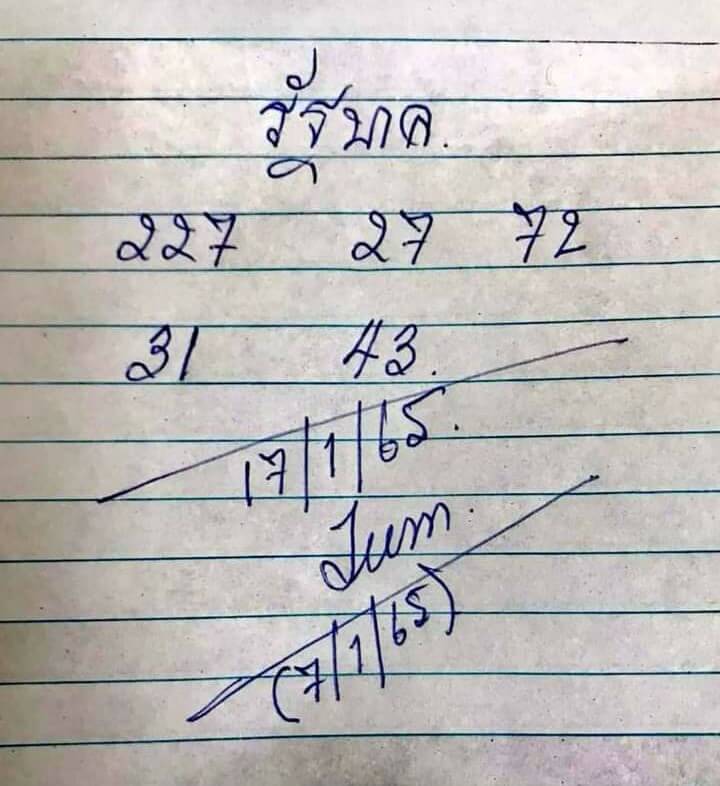 รัฐบาล.
227 27 72
31 43.
17/1/65.
Jum.
(7/1/65)